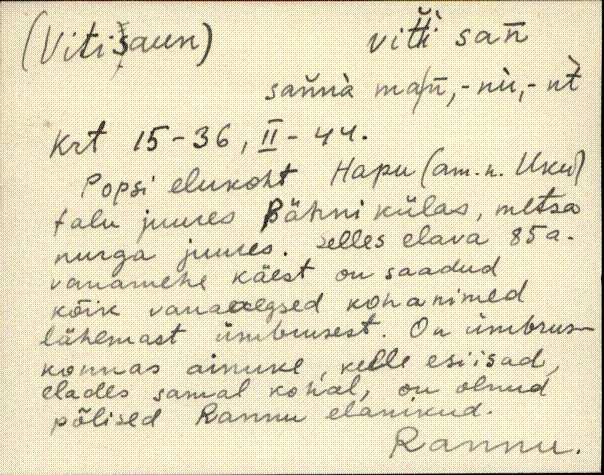 (Vitisaun) vitti san̄
san̄nà man̄, -nù, -nt̀
Krt 15-36, II-44.
Popsi elukoht Hapu (am. n. Uku)
talu juures Bähni külas, metsa
nurga juures. Selles elava 85 a.
vanamehe käest on saadud
kõik vanaaegsed kohanimed
lähemast ümbrusest. On ümbrus-
konnas ainuke, kelle esiisad,
elades samal kohal, on olnud
põlised Rannu elanikud.
Rannu.